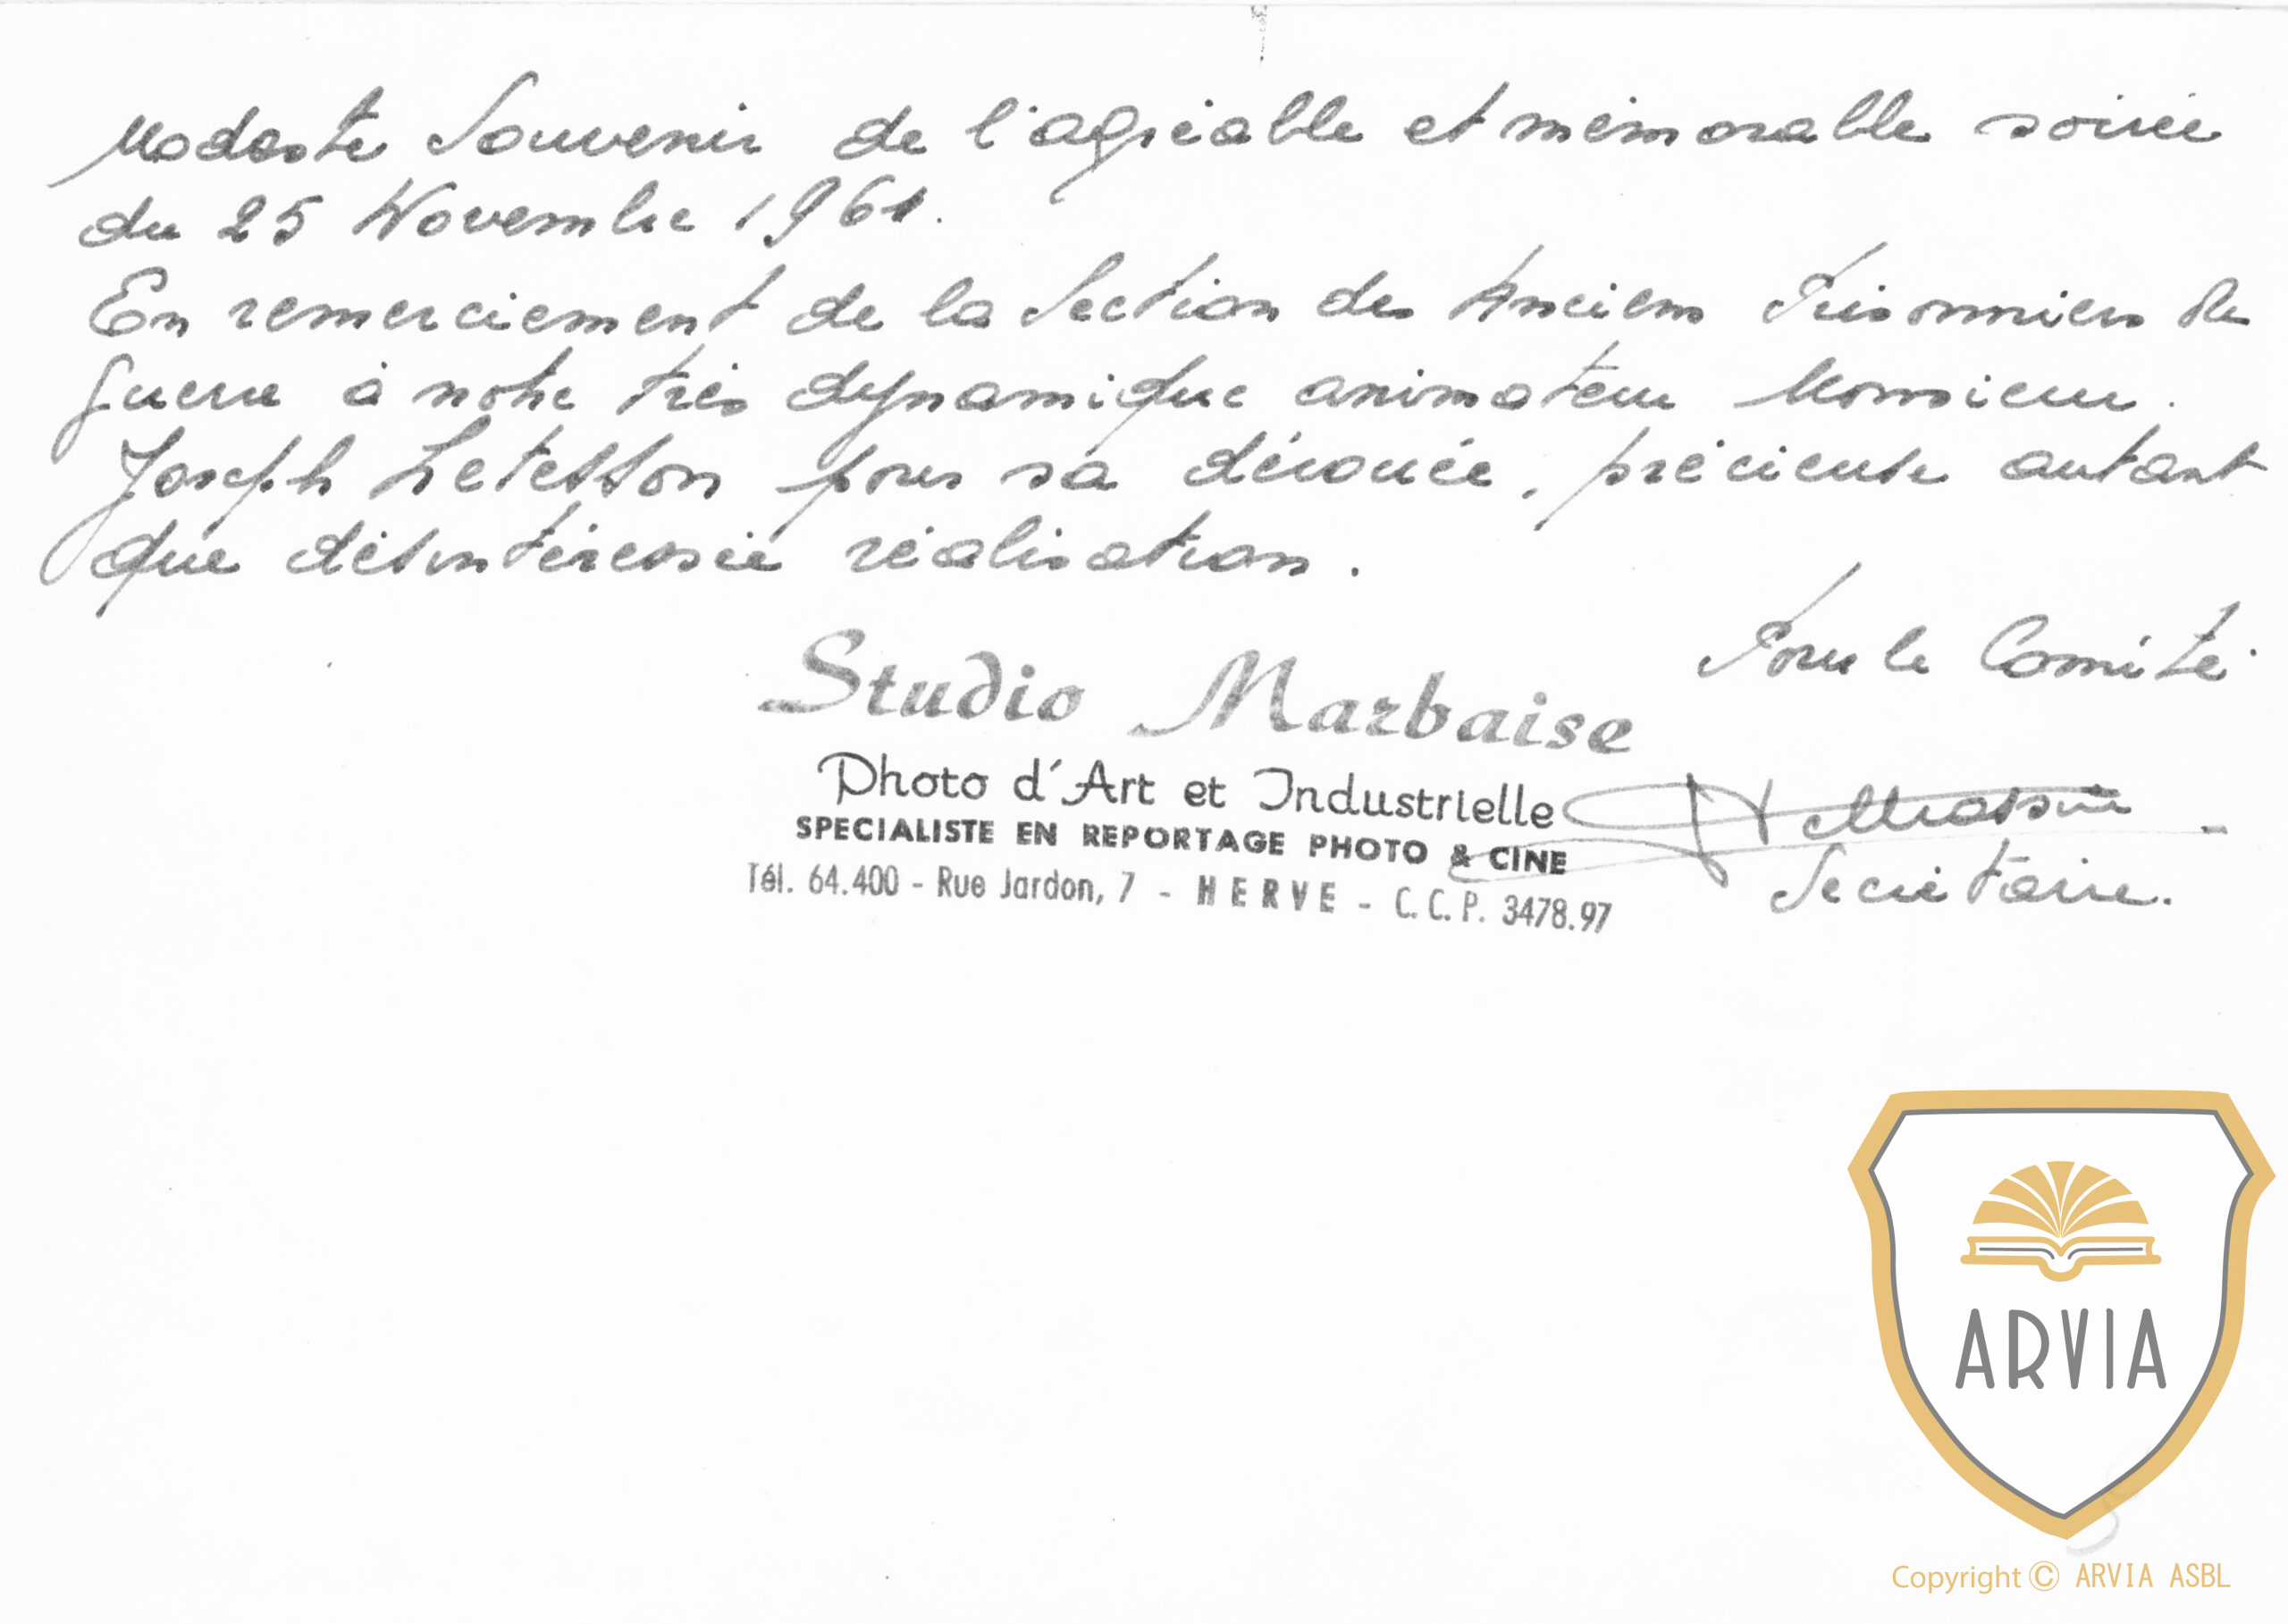 Modeste Souvenir de l'agréable et mémorable soirée
du 25 Novembre 1961.
En remerciement de la Section des Anciens Prisonniers de
guerre à notre très dynamique animateur Monsieur.
Joseph Letesson pour sa dévouée, précieuse autant
que désintéressée réalisation.
Pour le Comité.
Studio Marbaise
Photo d'Art et Industrielle
SPECIALISTE EN REPORTAGE PHOTO & CINE
Tél. 64.400 - Rue Jardon, 7 - HERVE - C.C.P. 3478.97
Secrétaire.
ARVIA
Copyright © ARVIA ASBL